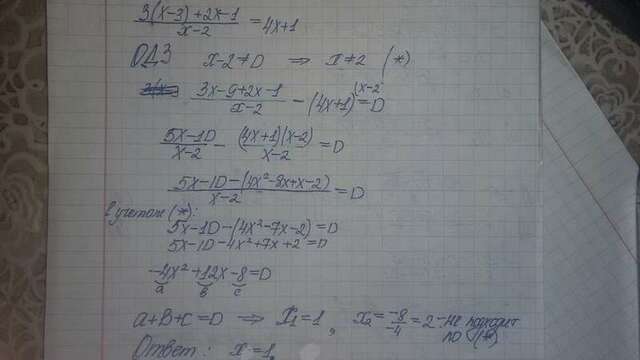 3(x-3)+2x-1 / x-2 = 4x+1
ОДЗ x-2≠0 ⇒ x≠2 (*)
3x-9+2x-1 / x-2 - (4x+1)^(x-2 = 0
5x-10 / x-2 - (4x+1)(x-2) / x-2 = 0
5x-10-(4x²-8x+x-2) / x-2 = 0
с учетом (*):
5x-10-(4x²-7x-2)=0
5x-10-4x²+7x+2=0
-4x²+12x-8=0
a b c
a+b+c=0 ⇒ x₁=1, x₂=-8/-4=2 - не подходит по (*)
Ответ: x=1.